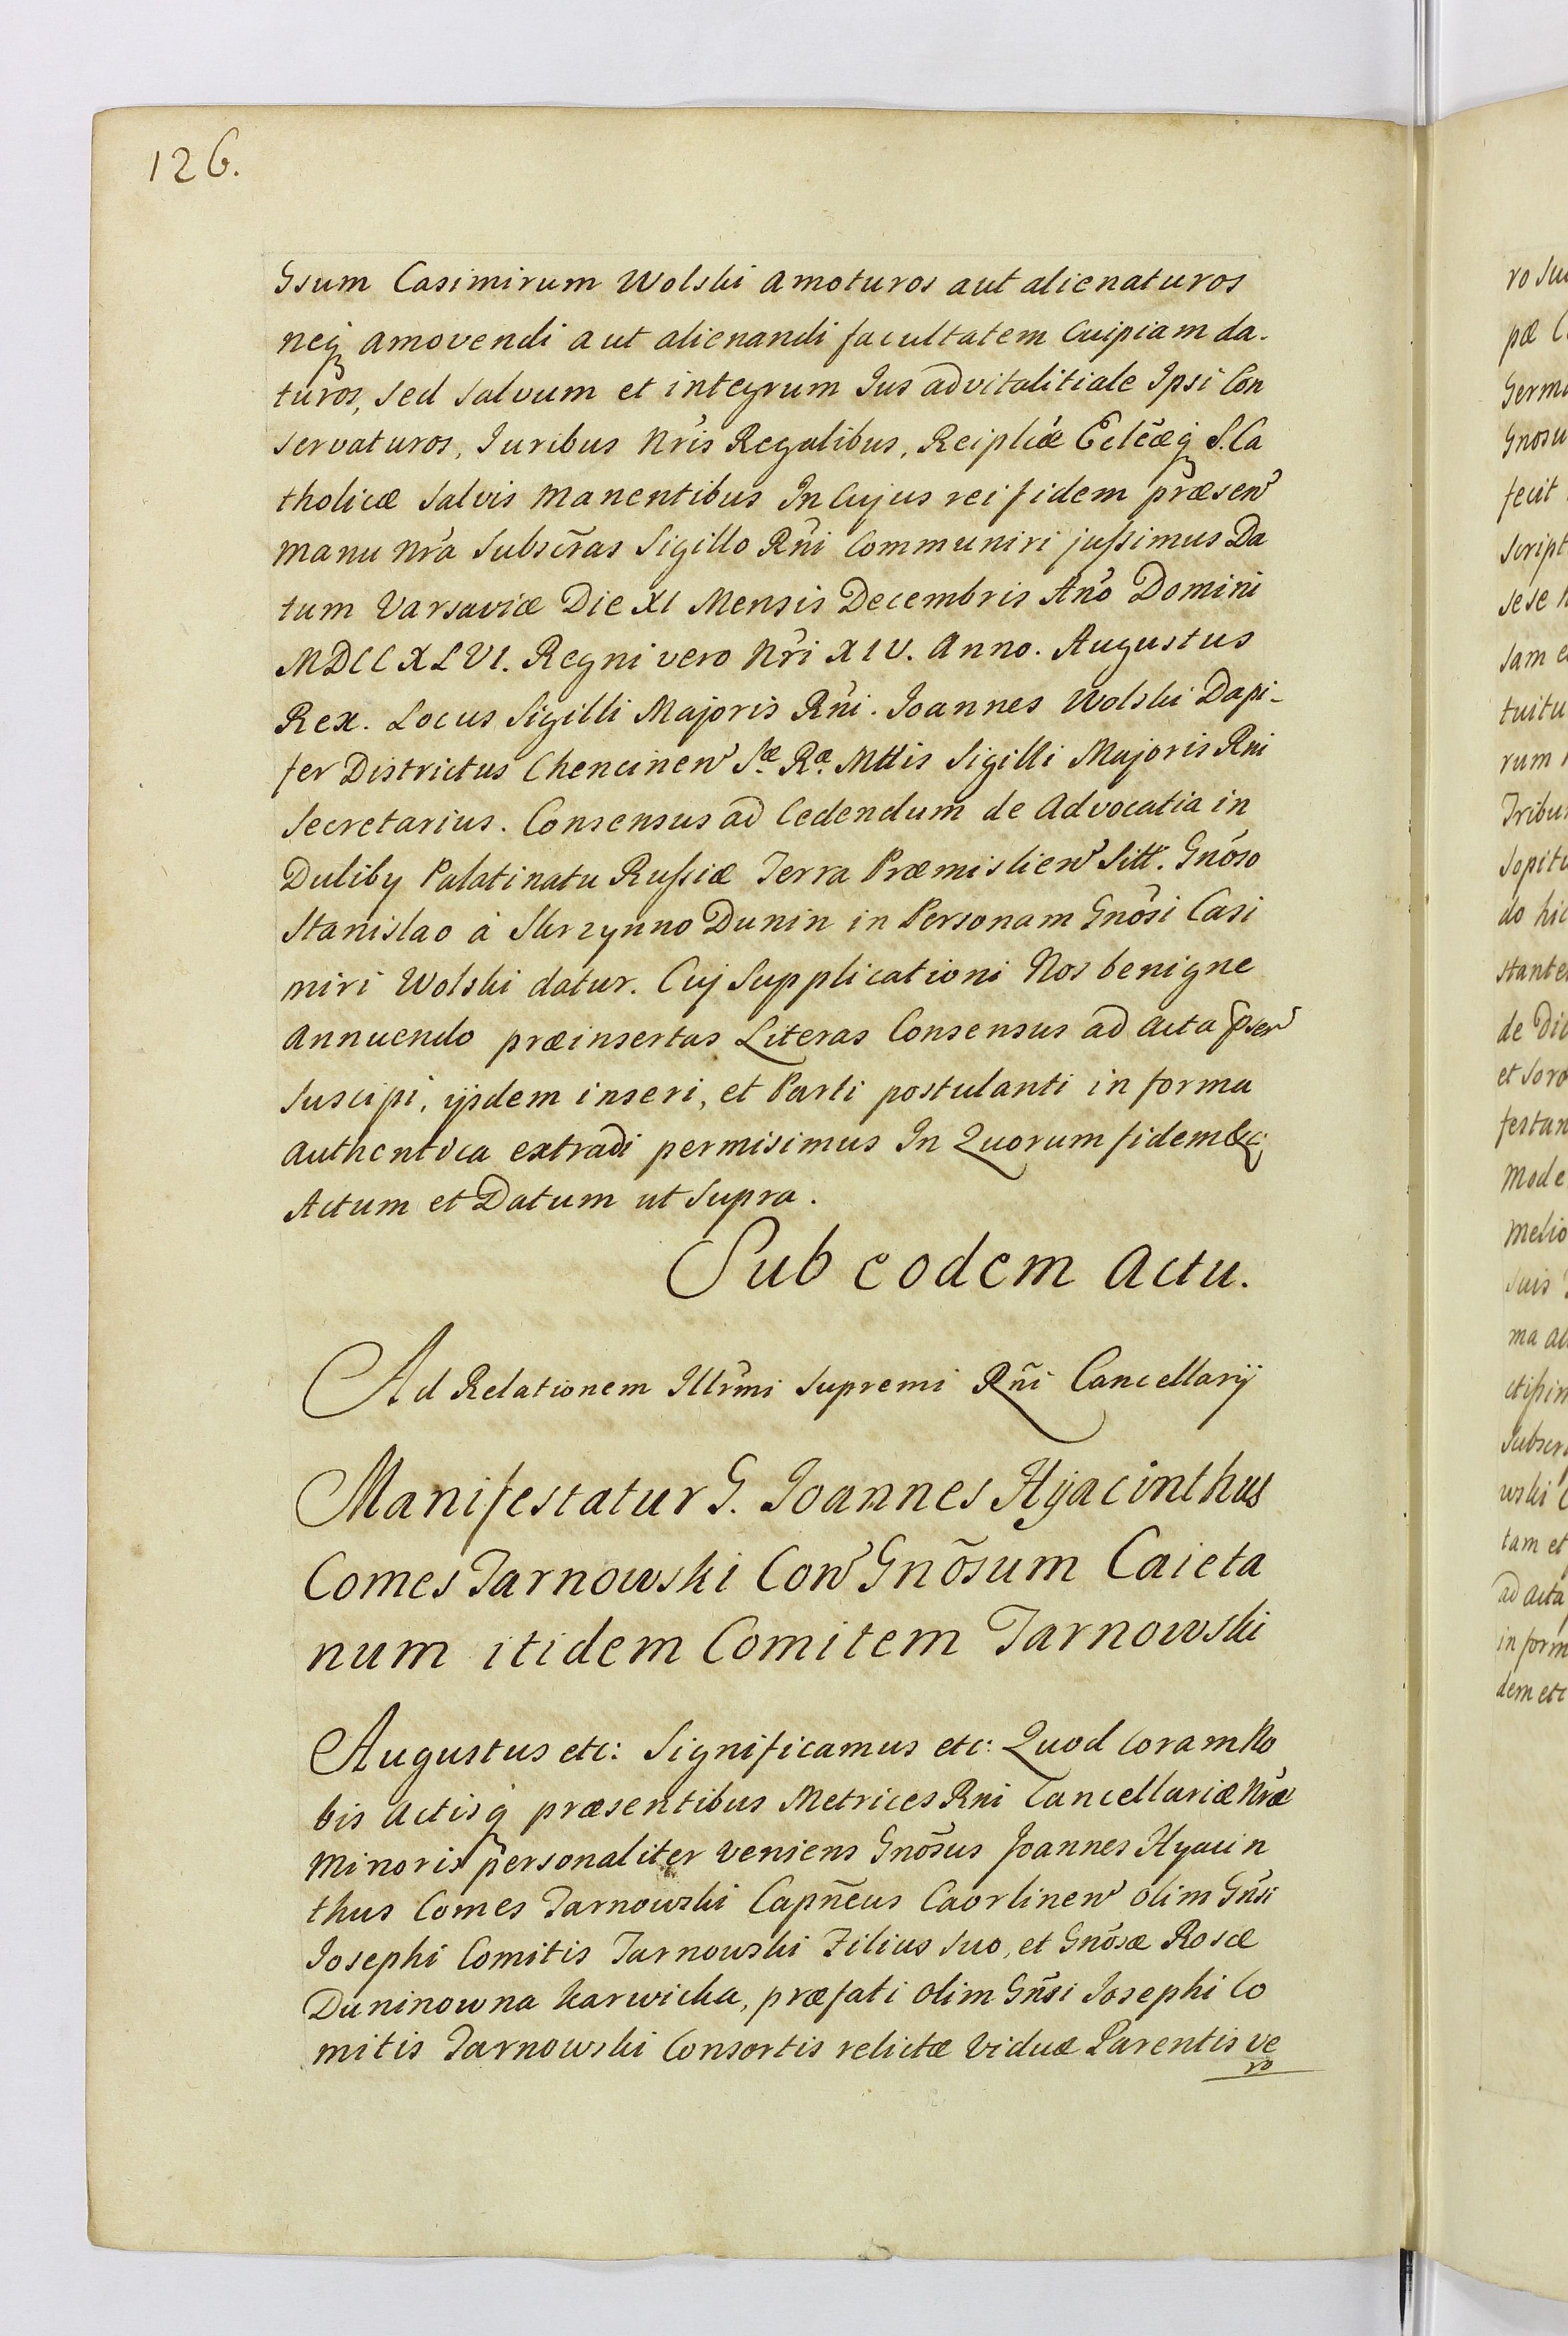 126.
Gsum Casimirum Wolski amoturos aut alienaturos
neq̃ amovendi aut alienandi facultatem Cuipiam da-
turos, sed salvum et integrum Jus advitalitiale Ipsi Con
servaturos, Juribus Nr̃is Regalibus, Reipl̃icæ Eclẽæq̃ S. Ca
tholicæ salvis manentibus In Cujus rei fidem præsen̄
manu nr̃a subscr̃as Sigillo Rñi Communiri jussimus Da
tum Varsaviæ Die XI Mensis Decembris Añō Domini
MDCCXLVI. Regni vero Nr̃i XIV. Anno. Augustus
Rex. Locus Sigilli Majoris Rñi. Joannes Wolski Dapi-
fer Districtus Chencinen̄ Sæ. Ræ. Mttis Sigilli Majoris Rni
Secretarius. Consensus ad Cedendum de Advocatia in
Duliby Palatinatu Russiæ Terra Præmislien̄ Sitt. Gnõso
Stanislao à Skrzynno Dunin in Personam Gnõsi Casi
miri Wolski datur. Cuj Supplicationi Nos benigne
annuendo præinsertas Literas Consensus ad acta p̃sen̄
suscipi, ijsdem inseri, et Parti postulanti in forma
authentica extradi permisimus In Quorum fidem &c:
Actum et Datum ut Supra.
Sub eodem Actu.
Ad Relationem Illr̃mi Supremi Rñi Cancellarij
Manifestatur G. Joannes Hyacinthus
Comes Tarnowski Con̄ Gnõsum Caieta
num itidem Comitem Tarnowski
Augustus etc: Significamus etc: Quod coram No
bis Actisq̃ præsentibus Metrices Rni Cancellariæ Nr̃æ
Minoris personaliter veniens Gnõsus Joannes Hyacin
thus Comes Tarnowski Capñeus Caorlinen̄ olim Gñsi
Josephi Comitis Tarnowski Filius suo, et Gnõsæ Rosæ
Duninowna Karwicka, præfati olim Gñsi Josephi Co
mitis Tarnowski Consortis relictæ Viduæ Parentis ve
ro
ro su
pæ C
Germ
Gnosu
fecit
script
sese
sam e
tuitu
rum
Tribu
sopit
do hic
stante
de Di
et soro
festan
mode
melio
suis
ma
Subscr
wski
tam et
ad acta
in form
dem etc